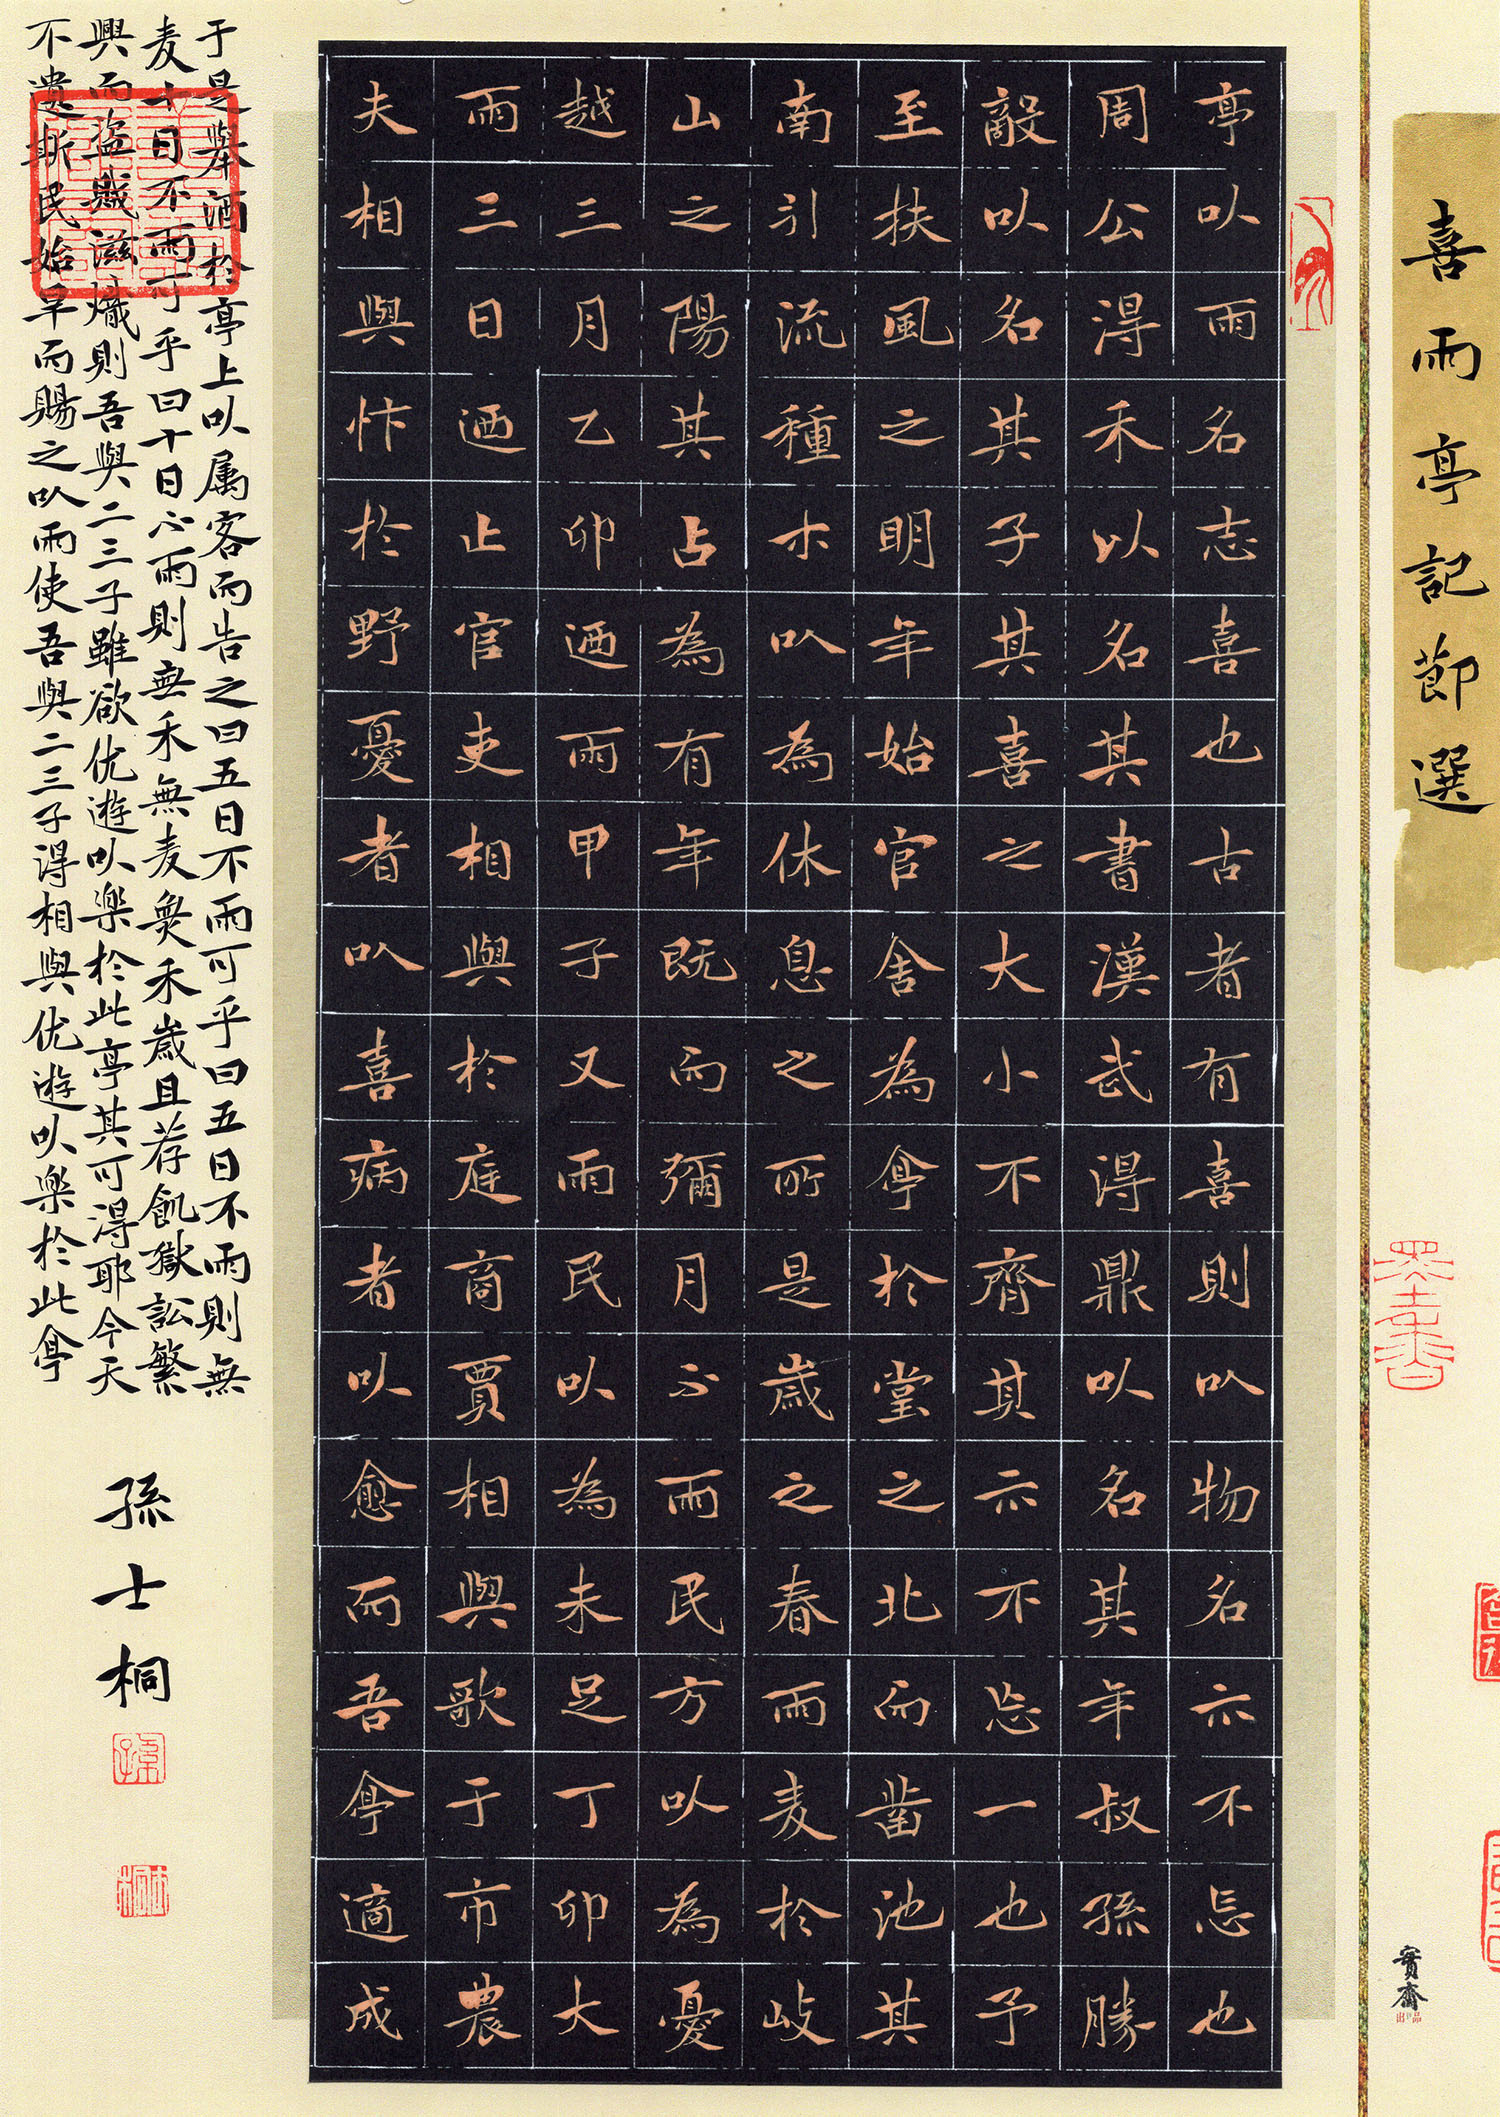 喜雨亭記節選
亭以雨名志喜也古者有喜則以物名示不忘也
周公得禾以名其書漢武得鼎以名其年叔孫勝
敵以名其子其喜之大小不齊其示不忘一也予
至扶風之明年始官舍為亭於堂之北而鑿池其
南引流種木以為休息之所是歲之春雨麦於岐
山之陽其占為有年既而彌月不雨民方以為憂
越三月乙卯迺雨甲子又雨民以為未足丁卯大
雨三日迺止官吏相與於庭商賈相與歌于市農
夫相與忭於野憂者以喜病者以愈而吾亭適成
于是舉酒於亭上以属客而告之曰五日不雨可乎曰五日不雨則無
麦十日不雨可乎曰十日不雨則無禾無麦無禾歲且荐飢獄訟繁
興而盗賊滋熾則吾與二三子雖欲优遊以樂於此亭其可得耶今天
不遺斯民始旱而賜之以雨使吾與二三子得相與优遊以樂於此亭
孫士桐
寳齋
出品